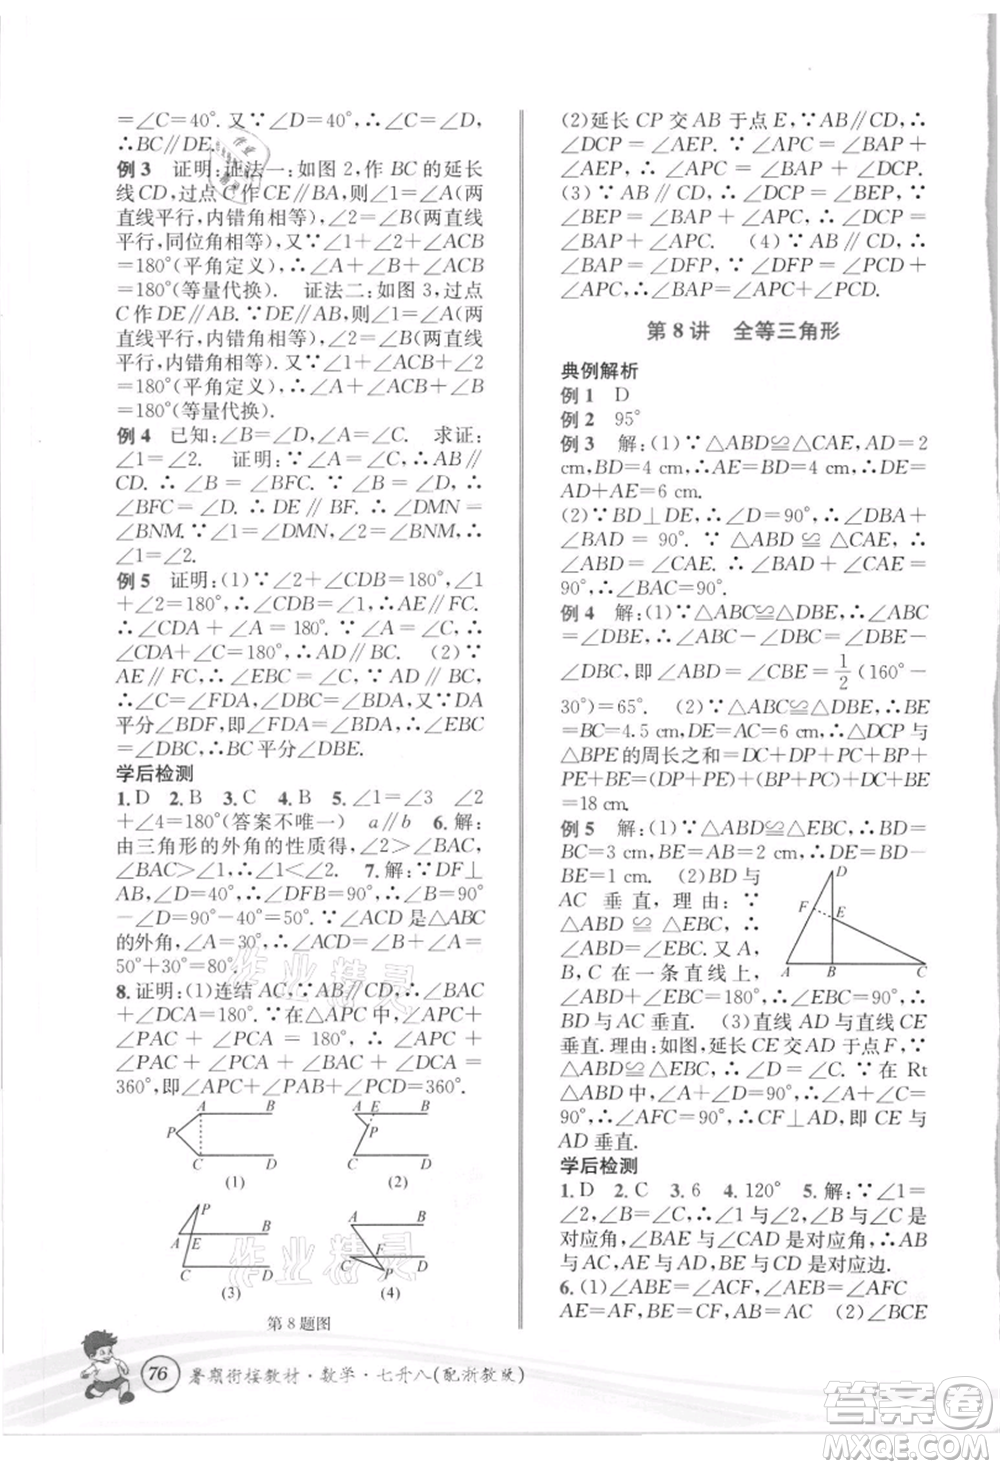 =∠C=40°. 又∵∠D=40°,∴∠C=∠D,
∴BC∥DE.
例 3 证明:证法一:如图 2,作 BC 的延长
线CD,过点C作CE∥BA,则∠1=∠A(两
直线平行,内错角相等),∠2=∠B(两直线
平行,同位角相等),又∵∠1+∠2+∠ACB
=180°(平角定义),∴∠A+∠B+∠ACB
=180°(等量代换). 证法二:如图 3,过点
C作DE∥AB.∵∠1=∠B(两直线平行,
内错角相等),∠2=∠A(两直线平行,内
错角相等),又∵∠1+∠2+∠ACB=180°
(平角定义),∴∠A+∠B+∠ACB
=180°(等量代换).
例 4 已知:∠B=∠D,∠A=∠C. 求证:
∠1=∠2. 证明:∵∠A=∠C,∴AB∥
CD. ∴∠B=∠BFC. ∵∠B=∠D, ∴
∠BFC=∠D. ∴DE∥BF. ∴∠DMN=
∠BNM.∵∠1=∠DMN,∠2=∠BNM,
∴∠1=∠2.
例 5 证明:(1)∵∠2+∠CDB=180°,∠1
+∠2=180°,∴∠CDB=∠1,∴AE∥FC.
∴∠CDA+∠DAE=180°,∵∠DAE=
∠BCF,∴∠CDA+∠BCF=180°.
∴AD∥BC. (2)∵
AE∥FC, ∴∠CDA+∠DAE=180°,
∴∠C=∠FDA,∠CBD=∠BDA,又∵DA
平分∠BDF,即∠FDA=∠BDA,∴∠EBC
=∠DBC,∴BC平分∠DBE.
学后检测
1. D 2. B 3. C 4. B 5. ∠1=∠3 ∠2
+∠4=180°(答案不唯一) a∥b 6. 解:
由三角形的外角的性质得,∠2>∠BAC,
∠BAC>∠1,∴∠1<∠2. 7. 解:∵DF⊥
AB,∴∠DFB=90°,∴∠B=
90°-∠D=90°-40°=50°.∵∠ACD是△ABC
的外角,∠A=30°,∴∠ACD=∠B+∠A=
50°+30°=80°.
8. 证明:(1)连结 AC.∵AB∥CD,∴∠BAC
+∠DCA=180°.∵在△APC 中,∠APC
+∠PAC + ∠PCA = 180°, ∴∠APC +
∠PAC + ∠PCA + ∠BAC + ∠DCA =
360°,即∠APC+∠PAB+∠PCD=360°.
A B P C D
(1)
A E B P C D
(2)
P A E B C D
(3)
A B F C D P
(4)
第 8 题图
76 暑期衔接教材·数学·七升八(配浙教版)
(2)延长 CP 交 AB 于点 E,∵AB∥CD,
∴∠DCP=∠AEP.∵∠APC=∠BAP+
∠AEP, ∴∠APC = ∠BAP + ∠DCP.
(3)∵AB∥CD,∴∠DCP=∠BEP,∵
∠BEP=∠BAP+∠APC,∴∠DCP=
∠BAP+∠APC. (4)∵AB∥CD,∴
∠BAP=∠DFP,∵∠DFP=∠DCP+
∠APC,∴∠BAP=∠DCP+∠APC.
第 8 讲 全等三角形
典例解析
例 1 D
例 2 95°
例 3 解:(1)∵△ABD≌△CAE,AD=2
cm,BD=4 cm,∴AE=BD=4 cm,∴DE=
AD+AE=6 cm.
(2)∵BD⊥DE,∴∠D=90°,∴∠DBA+
∠BAD = 90°. ∵ △ABD ≌ △CAE, ∴
∠DBA = ∠CAE. ∴ ∠BAD + ∠CAE =
90°,∴∠BAC=90°.
例 4 解:(1)∵△ABC≌△DBE,∴∠ABC
=∠DBE,∴∠ABC-∠DBC=∠DBE-
∠DBC,即∠ABD=∠CBE=1/2(160°-
30°)=65°. (2)∵△ABC≌△DBE,∴BE
=BC=4.5 cm,DE=AC=6 cm,∴△DCP 与
△BPE 的周长之和=DC+DP+CP+BP+
PE+BE=DC+(DP+PE)+(BP+CP)+BE
=18 cm.
例 5 解:(1)∵△ABD≌△EBC,∴BD=
BC=3 cm,BE=AB=2 cm,∴DE=BD-
BE=1 cm. (2)BD 与
AC 垂直,理由:∵
△ABD≌△EBC, ∴
∠ABD=∠EBC.又 A,
B,C 在一条直线上,
∠ABD+∠EBC=180°,∴∠EBC=90°,∴
BD与AC垂直. (3)直线AD与直线CE
垂直.理由:如图,延长 CE 交 AD 于点F,∵
△ABD≌△EBC,∴∠D=∠C.∵在 Rt
△ABD 中,∠A+∠D=90°,∴∠A+∠C=
90°,∴∠AFC=90°,∴CF⊥AD,∴CE 与
AD 垂直.
D F E A B C
学后检测
1. D 2. C 3. 6 4. 120° 5. 解:∵∠1=
∠2,∴∠BAE=∠CAD,∴∠B与∠C是对
应角,∠BAE与∠CAD是对应角,AB与
AC,AE与AD,BE与CD是对应边.
6. (1)∠ABE=∠ACF,∠AEB=∠AFC
AE=AF,BE=CF,AB=AC (2)∠BCE
作业精灵
作业精灵
答案圈
MXQE.COM